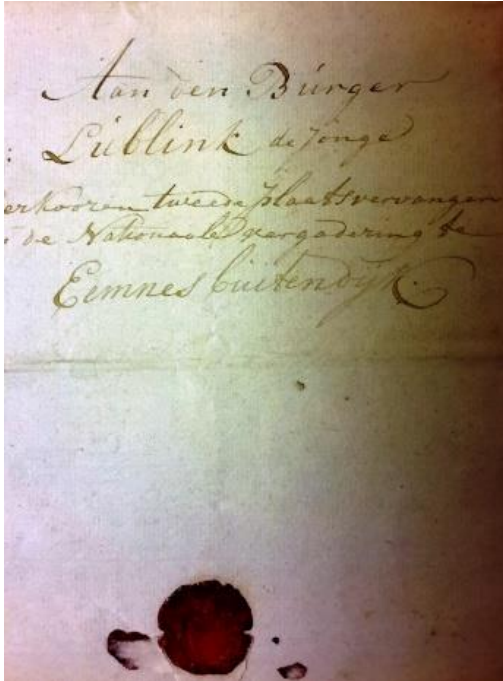 Aan den Búrger
: Lúblink de Jonge
erkooren tweede plaatsvervanger
de Nationaale vergadering te
Eemnes búitendijk.